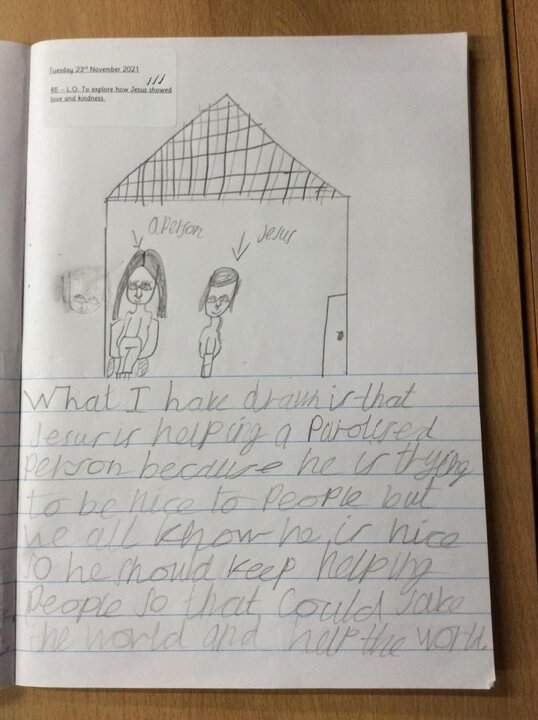 Tuesday 23rd November 2021
RE – L.O. To explore how Jesus showed
love and kindness.
a Person
Jesus
What I have drawn is that
Jesus is helping a Parolised
Person because he is trying
to be nice to People but
we all know he is nice
so he should keep helping
People so that could save
the world and help the world.